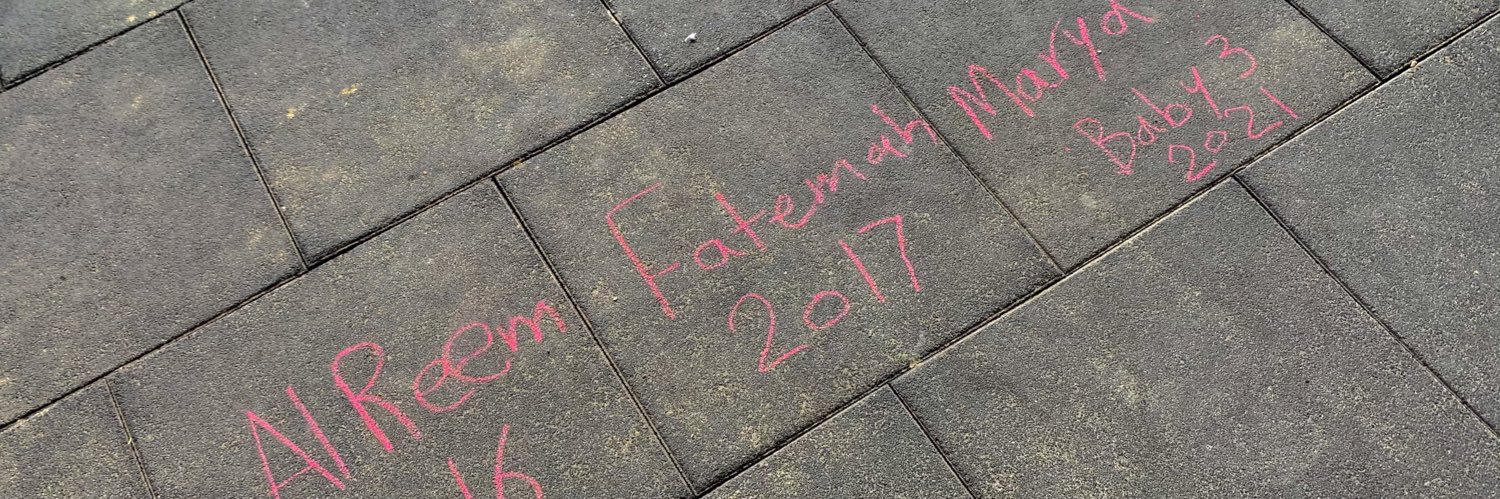 AlReem
16
Fatemah
2017
Marya
Baby 3
2021